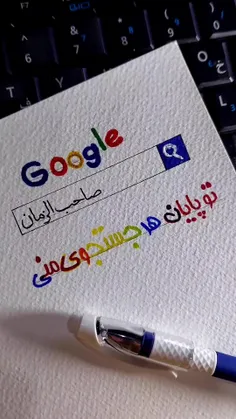 Google
صاحب الزمان
تو پایان هر جستجوی منی